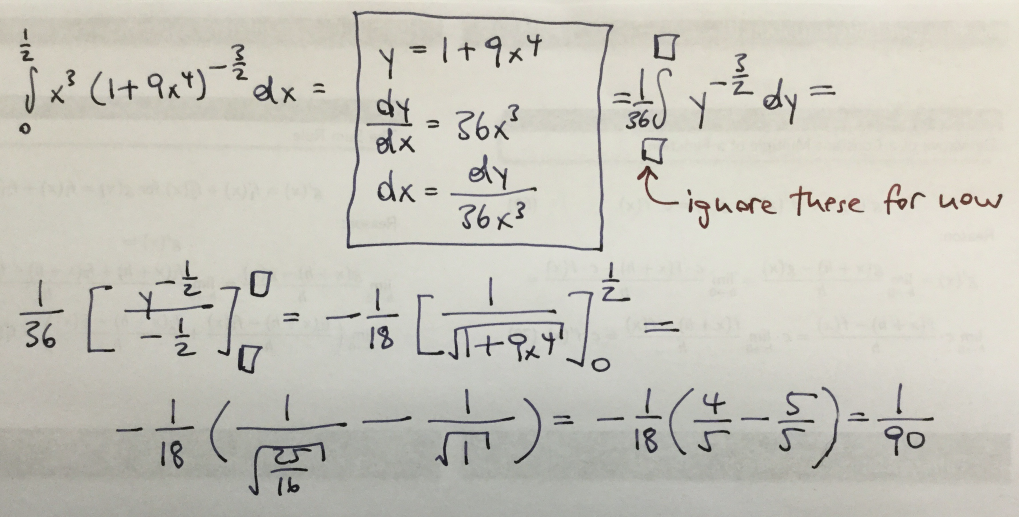 ∫₀^{1/2} x³ (1+9x⁴)^{-3/2} dx = [ y = 1+9x⁴ ; dy/dx = 36x³ ; dx = dy/36x³ ] = 1/36 ∫_□^□ y^{-3/2} dy =
ignore these for now
1/36 [ y^{-1/2} / -1/2 ]_□^□ = -1/18 [ 1/√(1+9x⁴) ]₀^{1/2} =
-1/18 ( 1/√(25/16) - 1/√1 ) = -1/18 ( 4/5 - 5/5 ) = 1/90